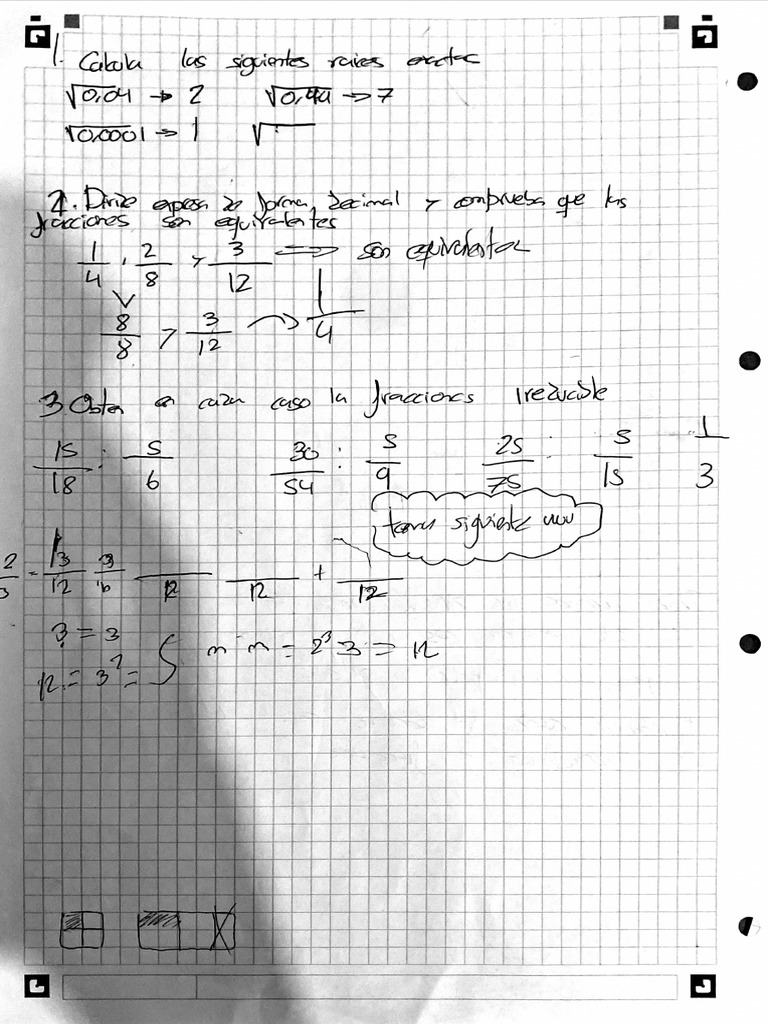 1. Calcula las siguientes raices exactas
√0,04 → 2 √0,44 → 7
√0,0001 → 1 √
2. Divize expresa de forma decimal y comprueba que las
fracciones son equivalentes
1/4 , 2/8 y 3/12 ⇒ son equivalentes
8/8 y 3/12 → 1/4
3 Obten en cada caso la fracciones irreducible
15/18 : 5/6 30/54 : 5/9 25/75 : 5/15 1/3
siguiente
/12 /12 + /12
3 = 3
12 = 3² = m m = 2³ 3 = 12